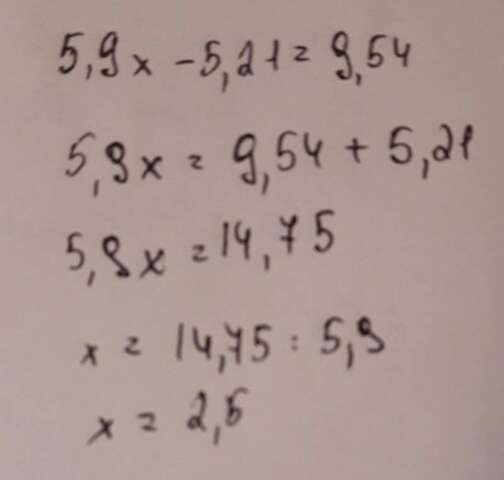 5,9x - 5,21 = 9,54
5,9x = 9,54 + 5,21
5,9x = 14,75
x = 14,75 : 5,9
x = 2,5